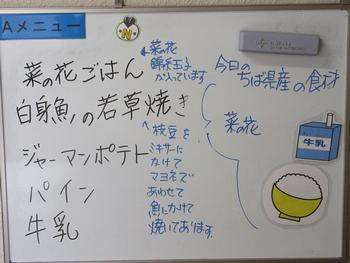 Aメニュー
N
菜の花ごはん
白身魚の若草焼き
ジャーマンポテト
パイン
牛乳
菜の花
錦糸玉子
が入っています
枝豆を
ミキサーに
かけて
マヨネで
あわせて
魚にかけて
焼いてあります。
今日の
ちば県産の食材
菜の花
牛乳